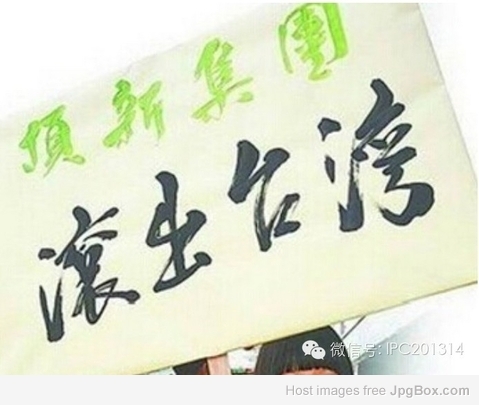 頂新集團
滾出台灣
微信号: IPC201314
Host images free JpgBox.com